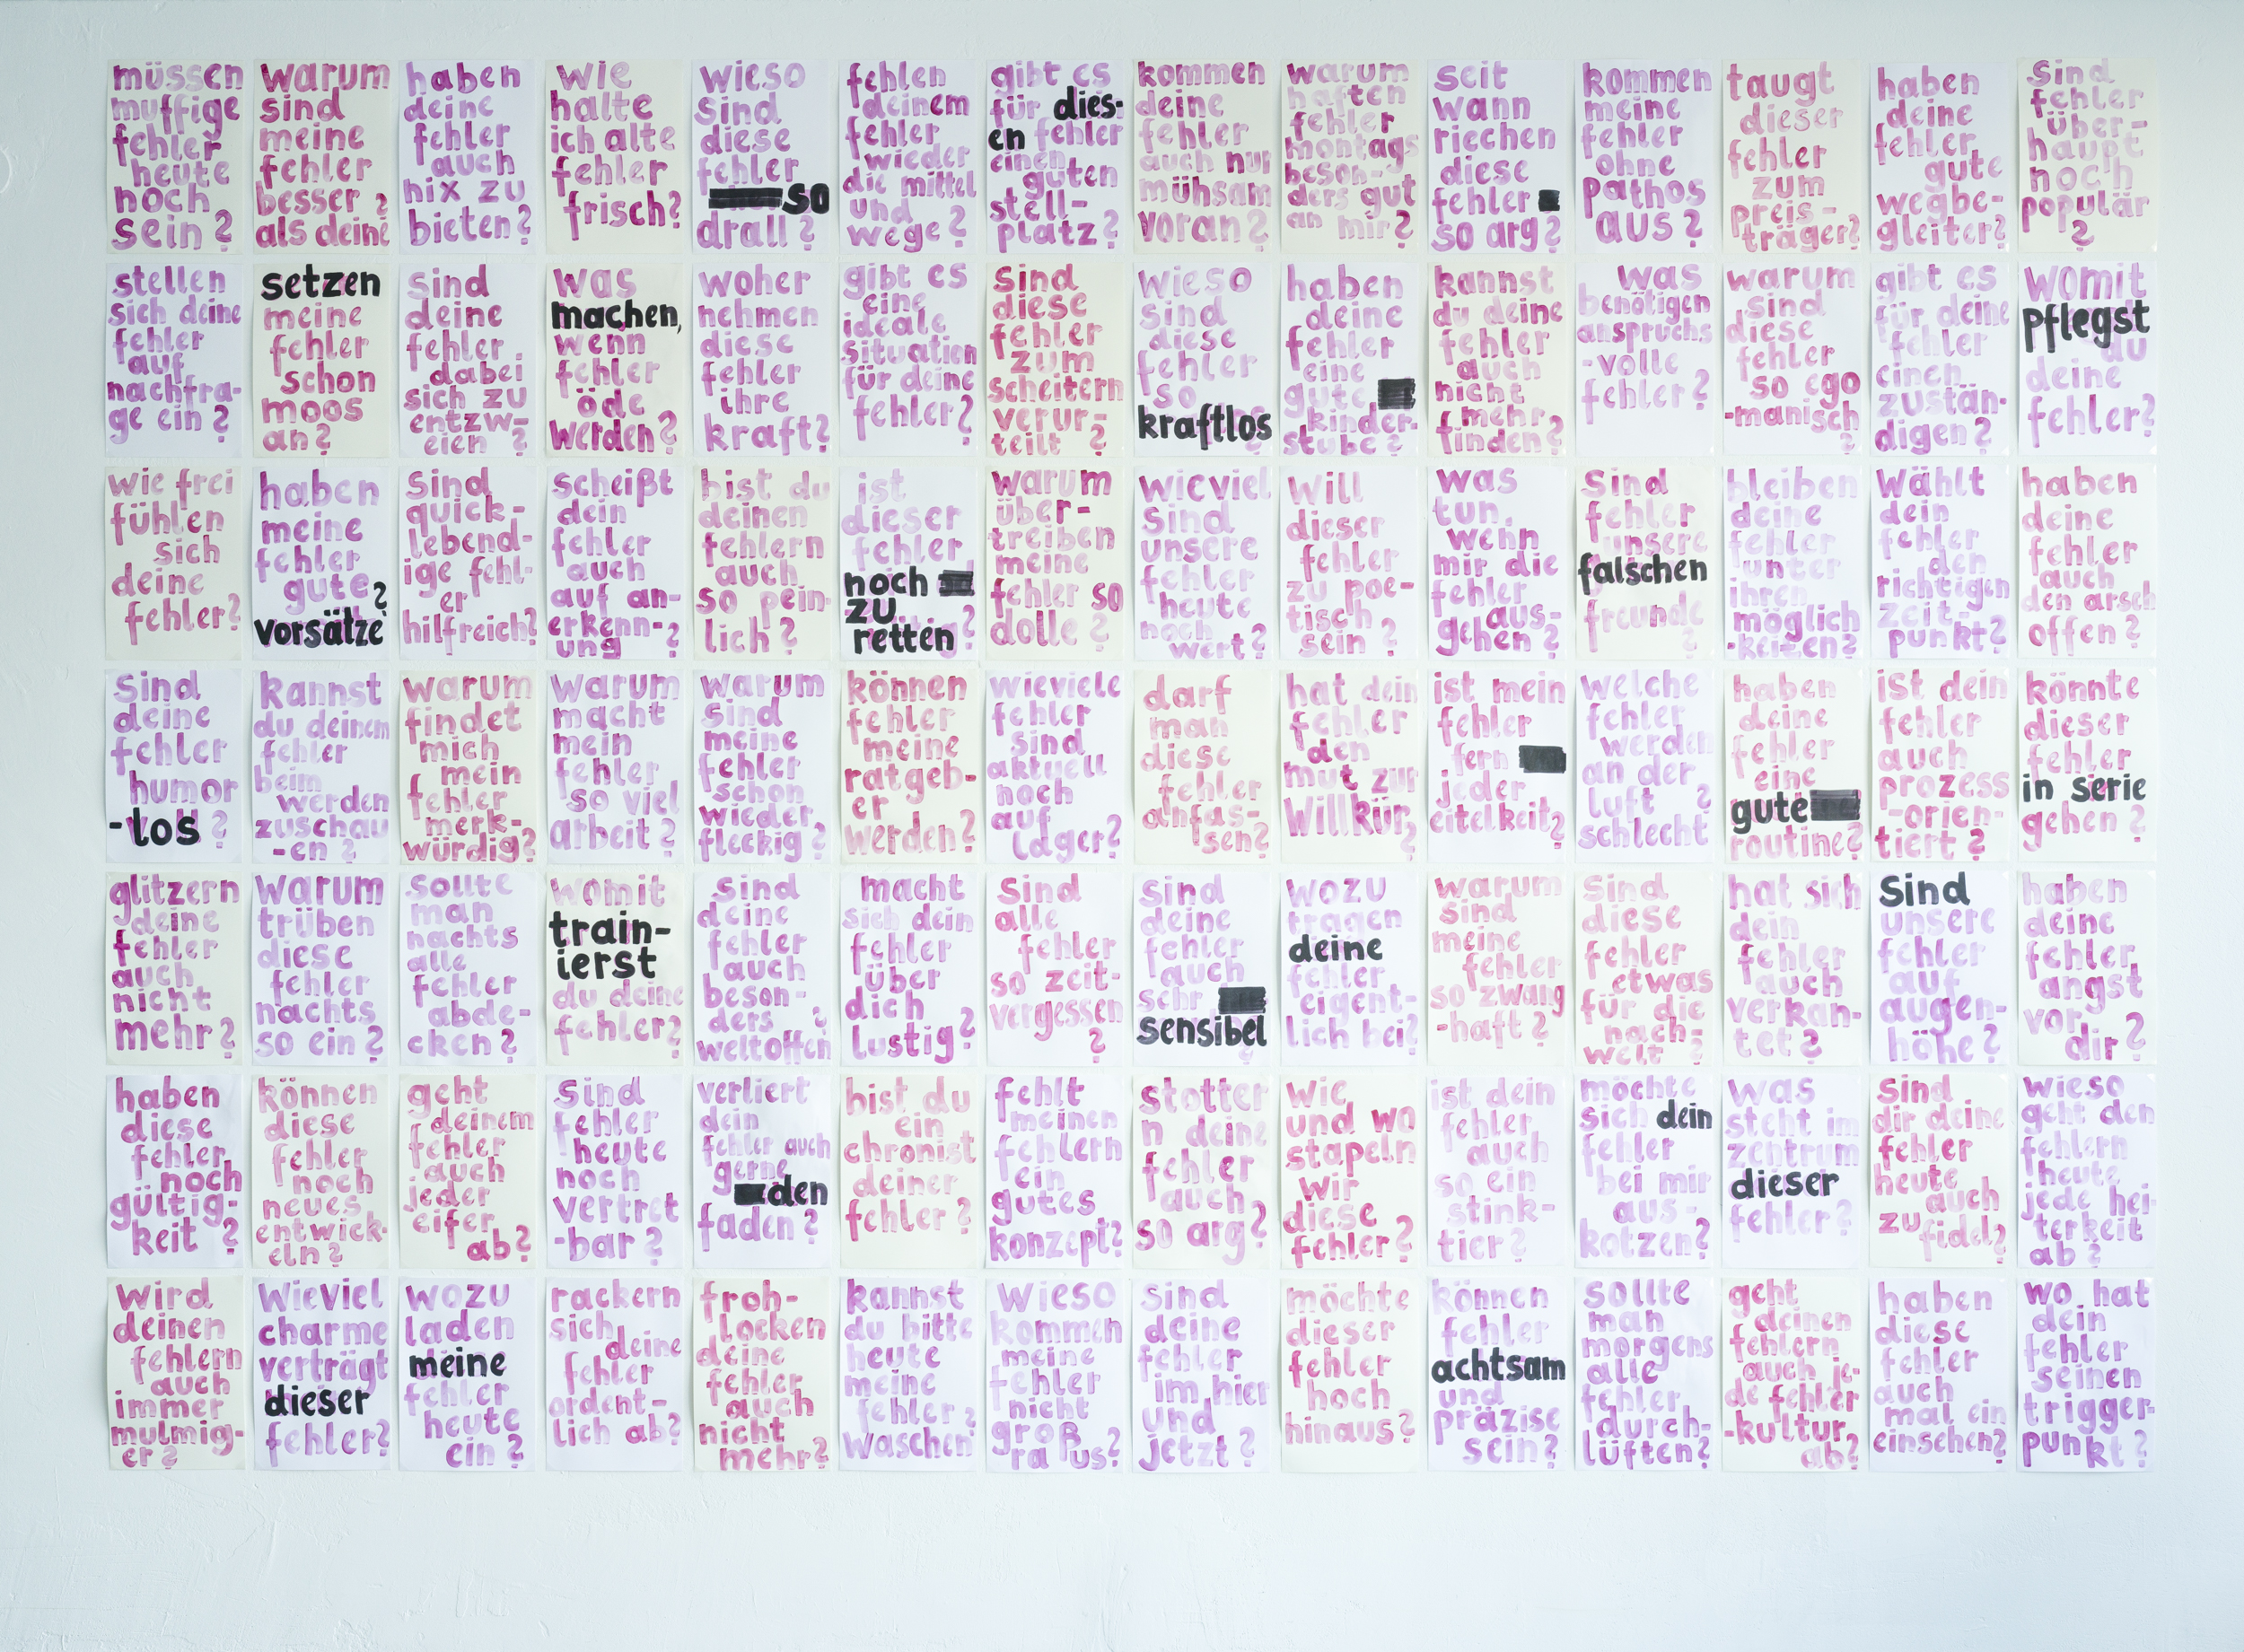 müssen
muffige
fehler
heute
noch
sein?
warum
sind
meine
fehler
besser?
als deine
haben
deine
fehler
auch
nix zu
bieten?
wie
halte
ich alte
fehler
frisch?
wieso
sind
diese
fehler
so
drall?
fehlen
deinem
fehler
wieder
die mittel
und
wege?
gibt es
für dies-
en fehler
einen
guten
stell-
platz?
kommen
deine
fehler
auch nur
mühsam
voran?
warum
haften
fehler
montags
beson-
ders gut
an mir?
seit
wann
riechen
diese
fehler
so arg?
kommen
meine
fehler
ohne
pathos
aus?
taugt
dieser
fehler
zum
preis-
träger?
haben
deine
fehler
gute
wegbe-
gleiter?
sind
fehler
über-
haupt
noch
populär
?
stellen
sich deine
fehler
auf
nachfra-
ge ein?
setzen
meine
fehler
schon
moos
an?
sind
deine
fehler
dabei
sich zu
entzw-
eien ?
was
machen,
wenn
fehler
öde
werden?
woher
nehmen
diese
fehler
ihre
kraft?
gibt es
eine
ideale
situation
für deine
fehler?
sind
diese
fehler
zum
scheitern
verur-
teilt ?
wieso
sind
diese
fehler
so
kraftlos
haben
deine
fehler
eine
gute
kinder-
stube?
kannst
du deine
fehler
auch
nicht
mehr
finden?
was
benötigen
anspruchs
-volle
fehler?
warum
sind
diese
fehler
so ego
-manisch
?
gibt es
für deine
fehler
einen
zustän-
digen?
womit
pflegst
du
deine
fehler?
wie frei
fühlen
sich
deine
fehler?
haben
meine
fehler
gute?
vorsätze
sind
quick-
lebend-
ige fehl-
er
hilfreich?
scheißt
dein
fehler
auch
auf an-
erkenn-?
ung
bist du
deinen
fehlern
auch
so pein-
lich?
ist
dieser
fehler
noch
zu ?
retten
warum
über-
treiben
meine
fehler so
dolle ?
wieviel
sind
unsere
fehler
heute
noch
wert?
will
dieser
fehler
zu poe-
tisch
sein ?
was
tun,
wenn
mir die
fehler
aus-
gehen?
sind
fehler
unsere
falschen
freunde
?
bleiben
deine
fehler
unter
ihren
möglich
-keiten?
wählt
dein
fehler
den
richtigen
zeit-
punkt?
haben
deine
fehler
auch
den arsch
offen?
sind
deine
fehler
humor
-los ?
kannst
du deinem
fehler
beim
werden
zuschau
-en ?
warum
findet
mich
mein
fehler
merk-
würdig?
warum
macht
mein
fehler
so viel
arbeit?
warum
sind
meine
fehler
schon
wieder
fleckig?
können
fehler
meine
ratgeb-
er
werden?
wieviele
fehler
sind
aktuell
noch
auf
lager?
darf
man
diese
fehler
anfas-
sen?
hat dein
fehler
den
mut zur
willkür?
ist mein
fehler
fern
jeder
eitelkeit?
welche
fehler
werden
an der
luft ?
schlecht
haben
deine
fehler
eine
gute
routine?
ist dein
fehler
auch
prozess
-orien-
tiert?
könnte
dieser
fehler
in serie
gehen?
glitzern
deine
fehler
auch
nicht
mehr?
warum
trüben
diese
fehler
nachts
so ein?
sollte
man
nachts
alle
fehler
abde-
cken?
womit
train-
ierst
du deine
fehler?
sind
deine
fehler
auch
beson-
ders ?
weltoffen
macht
sich dein
fehler
über
dich
lustig?
sind
alle
fehler
so zeit-
vergessen
?
sind
deine
fehler
auch
sehr
sensibel
wozu
tragen
deine
fehler
eigent-
lich bei?
warum
sind
meine
fehler
so zwang
-haft?
sind
diese
fehler
etwas
für die
nach-
welt ?
hat sich
dein
fehler
auch
verkan-
tet?
sind
unsere
fehler
auf
augen-
höhe?
haben
deine
fehler
angst
vor
dir?
haben
diese
fehler
noch
gültig-
keit ?
können
diese
fehler
noch
neues
entwick-
eln?
geht
deinem
fehler
auch
jeder
eifer
ab?
sind
fehler
heute
noch
vertret
-bar?
verliert
dein
fehler auch
gerne
den
faden?
bist du
ein
chronist
deiner
fehler?
fehlt
meinen
fehlern
ein
gutes
konzept?
stotter
n deine
fehler
auch
so arg?
wie
und wo
stapeln
wir
diese
fehler?
ist dein
fehler
auch
so ein
stink-
tier?
möchte
sich dein
fehler
bei mir
aus-
kotzen?
was
steht im
zentrum
dieser
fehler?
sind
dir deine
fehler
heute
auch
zu
fidel?
wieso
geht den
fehlern
heute
jede hei-
terkeit
ab?
wird
deinen
fehlern
auch
immer
mulmig-
er?
wieviel
charme
verträgt
dieser
fehler?
wozu
laden
meine
fehler
heute
ein?
rackern
sich
deine
fehler
ordent-
lich ab?
froh-
locken
deine
fehler
auch
nicht
mehr?
kannst
du bitte
heute
meine
fehler?
waschen
wieso
kommen
meine
fehler
nicht
groß
raus?
sind
deine
fehler
im hier
und
jetzt?
möchte
dieser
fehler
hoch
hinaus?
können
fehler
achtsam
und
präzise
sein?
sollte
man
morgens
alle
fehler
durch-
lüften?
geht
deinen
fehlern
auch je-
de fehler
-kultur
ab?
haben
diese
fehler
auch
mal ein
einsehen?
wo hat
dein
fehler
seinen
trigger-
punkt?